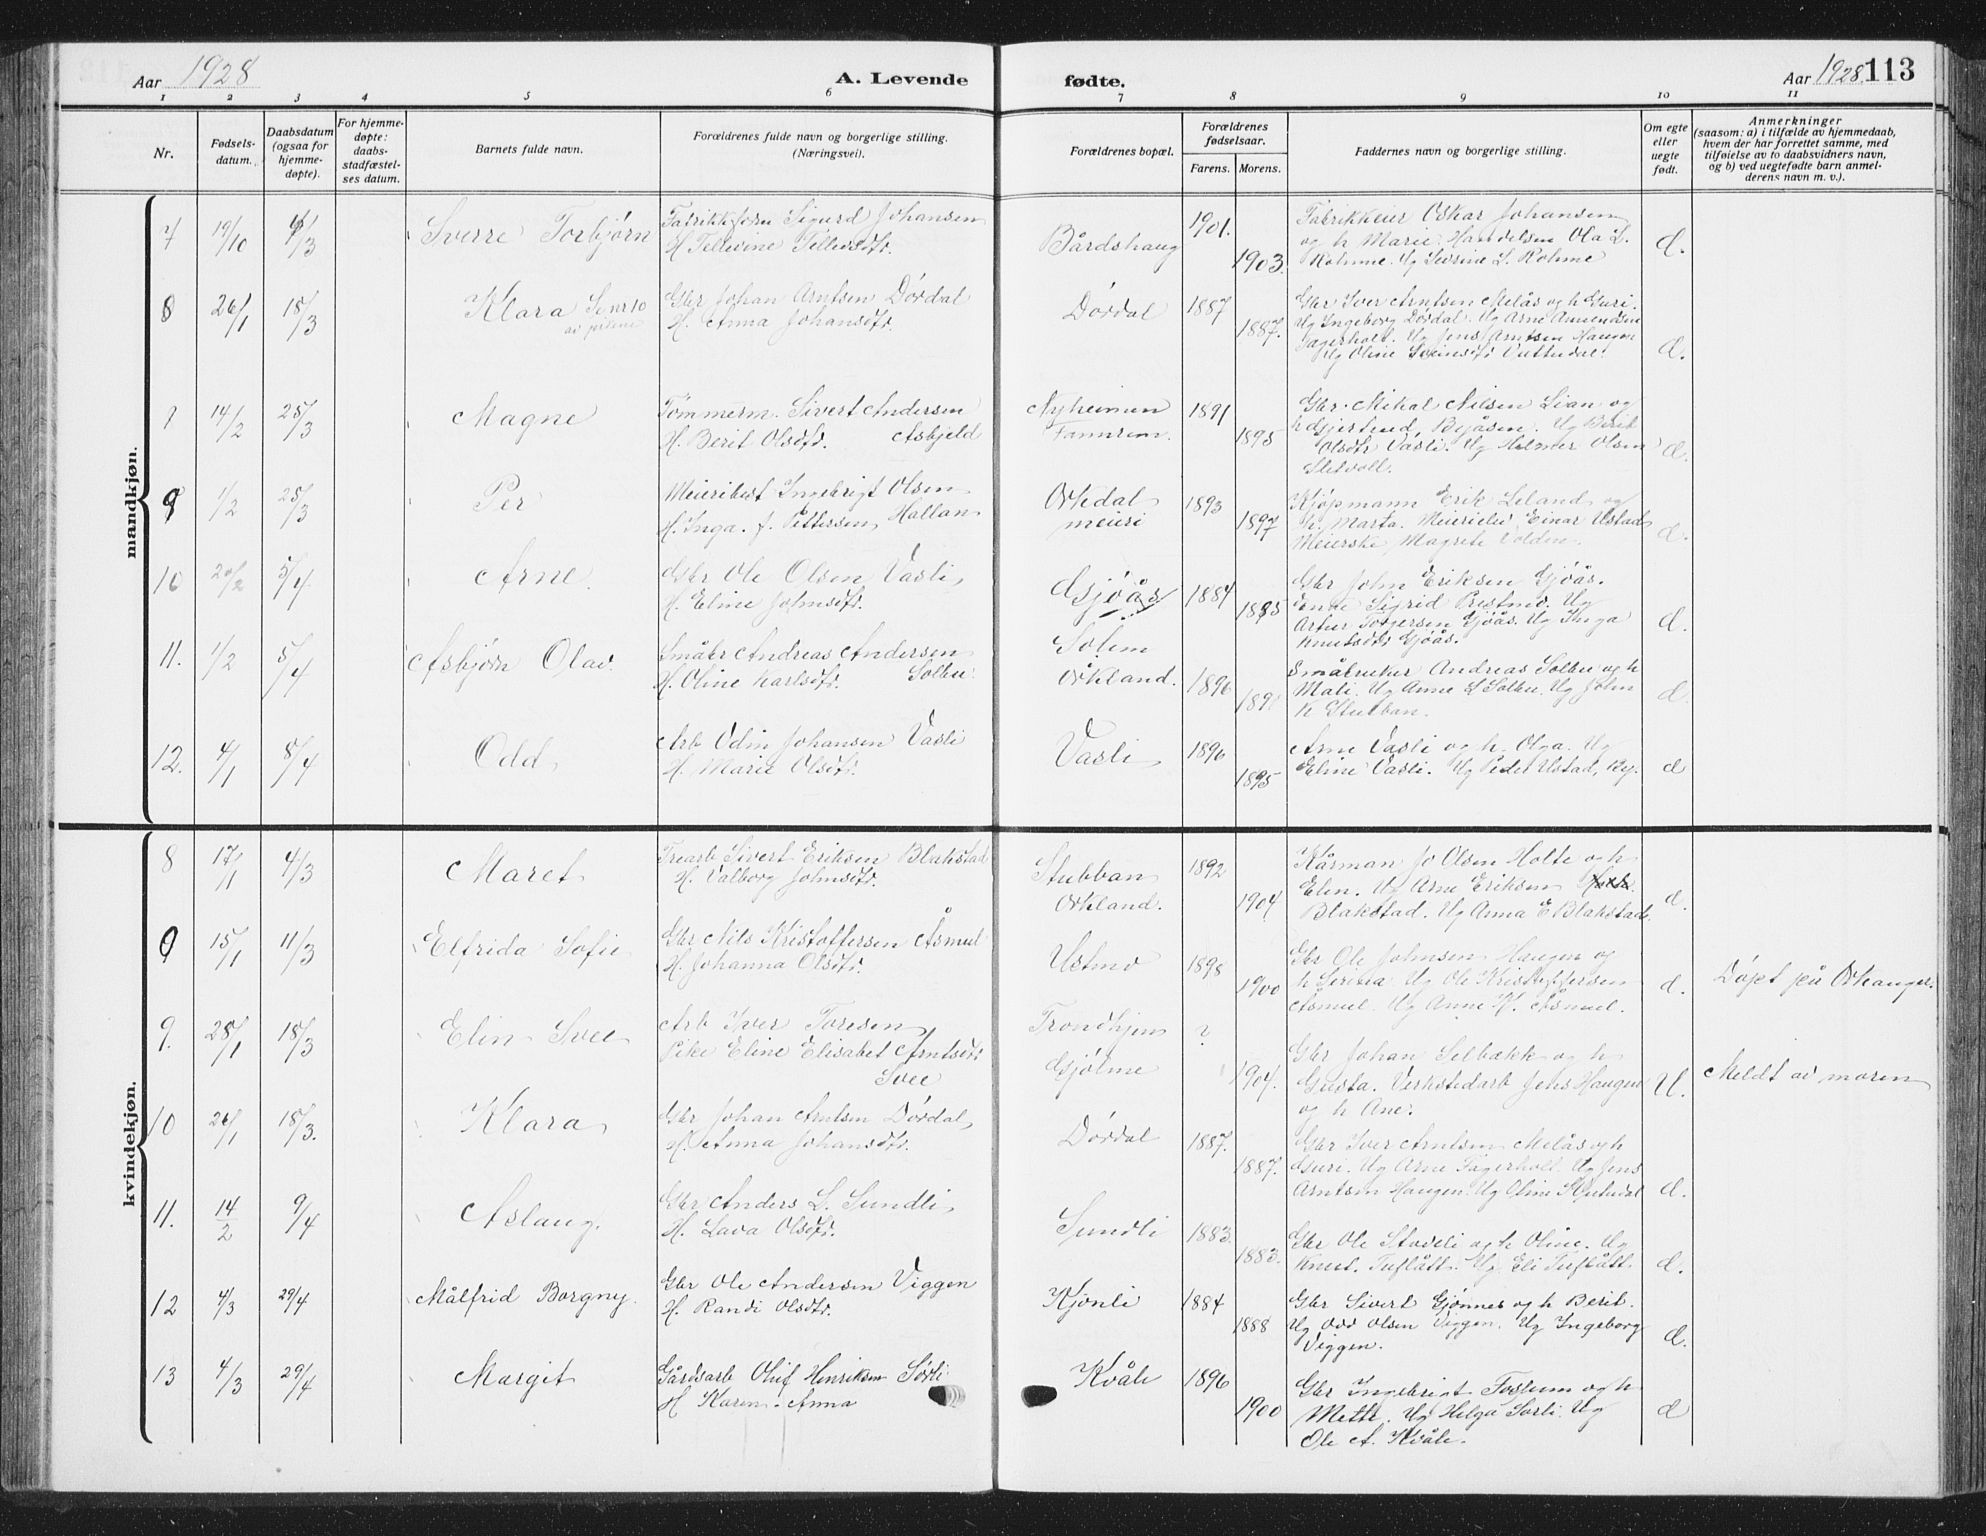 Aar 1928
A. Levende
fødte.
Aar 1928.
113
1 2 3 4 5 6 7 8 9 10 11
Nr.
Fødsels-
datum.
Daabsdatum
(ogsaa for
hjemme-
døpte).
For hjemme-
døpte:
daabs-
stadfæstel-
ses datum.
Barnets fulde navn.
Forældrenes fulde navn og borgerlige stilling.
(Næringsvei).
Forældrenes bopæl.
Forældrenes
fødselsaar.
Farens. Morens.
Faddernes navn og borgerlige stilling.
Om egte
eller
uegte
født.
Anmerkninger
(saasom: a) i tilfælde av hjemmedaab,
hvem der har forrettet samme, med
tilføielse av to daabsvidners navn,
og b) ved uegtefødte barn anmel-
derens navn m. v.).
mandkjøn.
7 19/10 /3 Sverre Torbjørn
Sigurd Johansen
H. Tellevine
Bårdshaug 1901. 1903
Fabrikkeier Oskar Johansen
og h Marie. Handelsm Ola L.
Rohme. Ug Sevrine L. Rohme
d.
8 26/1 18/3 Klara Se nr 10
av pikene
Gbr Johan Arntsen Dørdal
H. Anna Johansdtr.
Dørdal 1887 1887.
Gbr Iver Arntsen Melås og h Guri.
Ug Ingeborg Dørdal. Ug Arne Amundsen
Fagerholt. Ug Jens Arntsen Haugen
Ug Oline
d.
14/2 25/3 Magne
Tømmerm. Sivert Andersen
H. Berit Olsdtr. Asbjeld
Nyheimen
Fannrem. 1891 1895
Gbr. Mikal Nilsen Lian og
h Gjertrud, Byåsen. Ug Berit
Olsdtr Vasli. Ug Hilmer Olsen
Sletvoll.
d.
9 1/2 25/3 Per
Meieribest Ingebrigt Olsen
H. Inga. f. Pettersen Hallan
Orkedal
meieri 1893 1897
Kjøpmann Erik Leland og
h. Marta. Meierielev Einar Ustad
Meierske Magrete Volden.
d.
10 20/2 5/4 Arne.
Gbr Ole Olsen Vasli,
H. Eline Johnsdtr.
Gjøås 1884 1885
Gbr John Eriksen Gjøås.
Enke Sigrid Prestmo. Ug
Artur Torgersen Gjøås. Ug Inga
Knutsdtr Gjøås.
d.
11. 1/2 5/4 Asbjørn Olav.
Småbr Andreas Andersen
H. Oline Karlsdtr. Solbu.
Solem
Orkland. 1896
Småbruker Andreas Solbu og h
Mali. Ug Anne L Solbu. Ug John
K Stubban.
d
12. 4/1 8/4 Odd
Arb Odin Johansen Vasli
H. Marie Olsdtr.
Vasli 1896 1895
Arne Vasli og h. Olga. Ug
Eline Vasli. Ug Peder Ustad, By.
d
kvindekjøn.
8 17/1 4/3 Maret
Trearb Sivert Eriksen Blakstad
H. Valborg Johnsdtr.
Stubban
Orkland. 1892 1904
Kårman Jo Olsen Holte og h
Elen. Ug Arne Eriksen
Blakstad. Ug Anna E Blakstad.
d.
9 15/1 11/3 Elfrida Sofie
Gbr Nils Kristoffersen Åsmul
H. Johanna Olsdtr.
Ustmo 1898 1900
Gbr Ole Johnsen Haugen og
h Serina Ug Ole Kristoffersen
Åsmul. Ug Anne N. Åsmul.
d. Døpt på Orkanger.
9. 28/1 18/3 Elin Svee
Arb Iver Toresen
Pike Eline Elisabet Arntsdtr
Svee
Trondhjem
Gjølme ? 1904.
Gbr Johan Selbækk og h
Gusta. Verkstedarb Jens Haugen
og h Ane.
U. Meldt av moren
10 26/1 18/3. Klara
Gbr Johan Arntsen Dørdal,
H. Anna Johansdtr.
Dørdal 1887. 1887.
Gbr Iver Arntsen Melås og h
Guri. Ug Arne Fagerholt. Ug Jens
Arntsen Haugen. Ug Oline
d.
11. 14/2 9/4 Aslaug.
Gbr Anders L. Sundli,
H. Lava Olsdtr.
Sundli 1883. 1883.
Gbr Ole Stokli og h Oline. Ug
Knut. Tuflått. Ug Eli Tuflått.
d.
12 4/3 29/4 Målfrid Borgny.
Gbr Ole Andersen Viggen
H. Randi Olsdtr.
Kjønli 1884 1888
Gbr Sivert Gjønnes og h Berit.
Ug Odd Olsen Viggen. Ug Ingeborg
Viggen.
d.
13 4/3 29/4 Margit
Gårdsarb Oluf Henriksen Sørli
H Karen Anna
Kvåle 1896 1900
Gbr Ingebrigt Fossum og h
Mette. Ug Helga Sørli. Ug
Ole A. Kvåle.
d